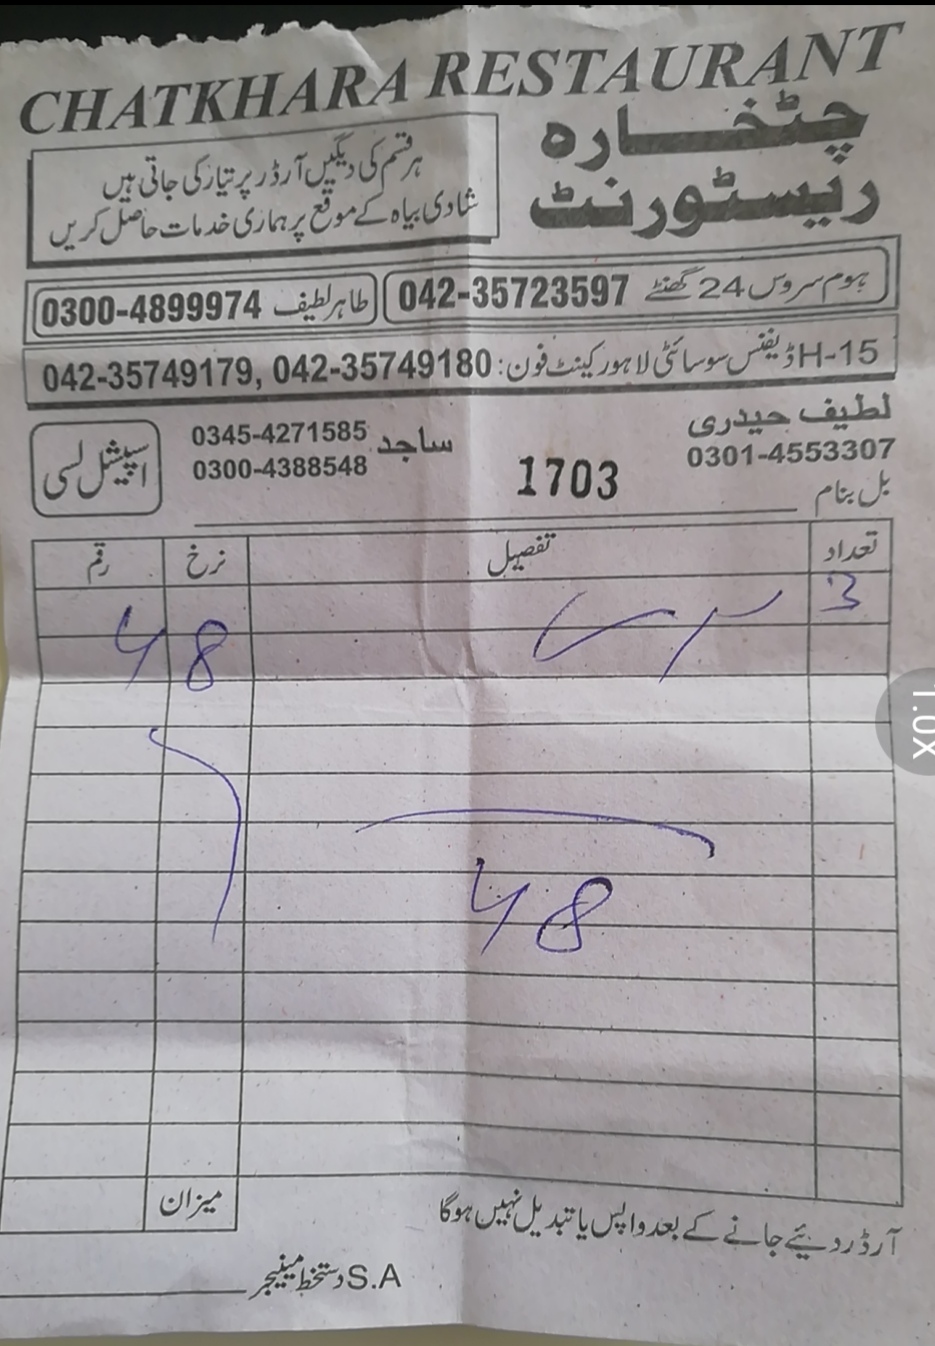 CHATKHARA RESTAURANT
چٹخارہ
ریسٹورنٹ
ہر قسم کی دیگیں آرڈر پر تیار کی جاتی ہیں
شادی بیاہ کے موقع پر ہماری خدمات حاصل کریں
ہوم سروس 24 گھنٹے 042-35723597
طاہر لطیف 0300-4899974
H-15 ڈیفنس سوسائٹی لاہور کینٹ فون: 042-35749179, 042-35749180
لطیف حیدری
0301-4553307
ساجد 0345-4271585
0300-4388548
اسپیشل لسی
1703
بل بنام
تعداد تفصیل نرخ رقم
3 48
48
میزان
آرڈر دیئے جانے کے بعد واپس یا تبدیل نہیں ہوگا
S.A دستخط مینیجر
1.0X